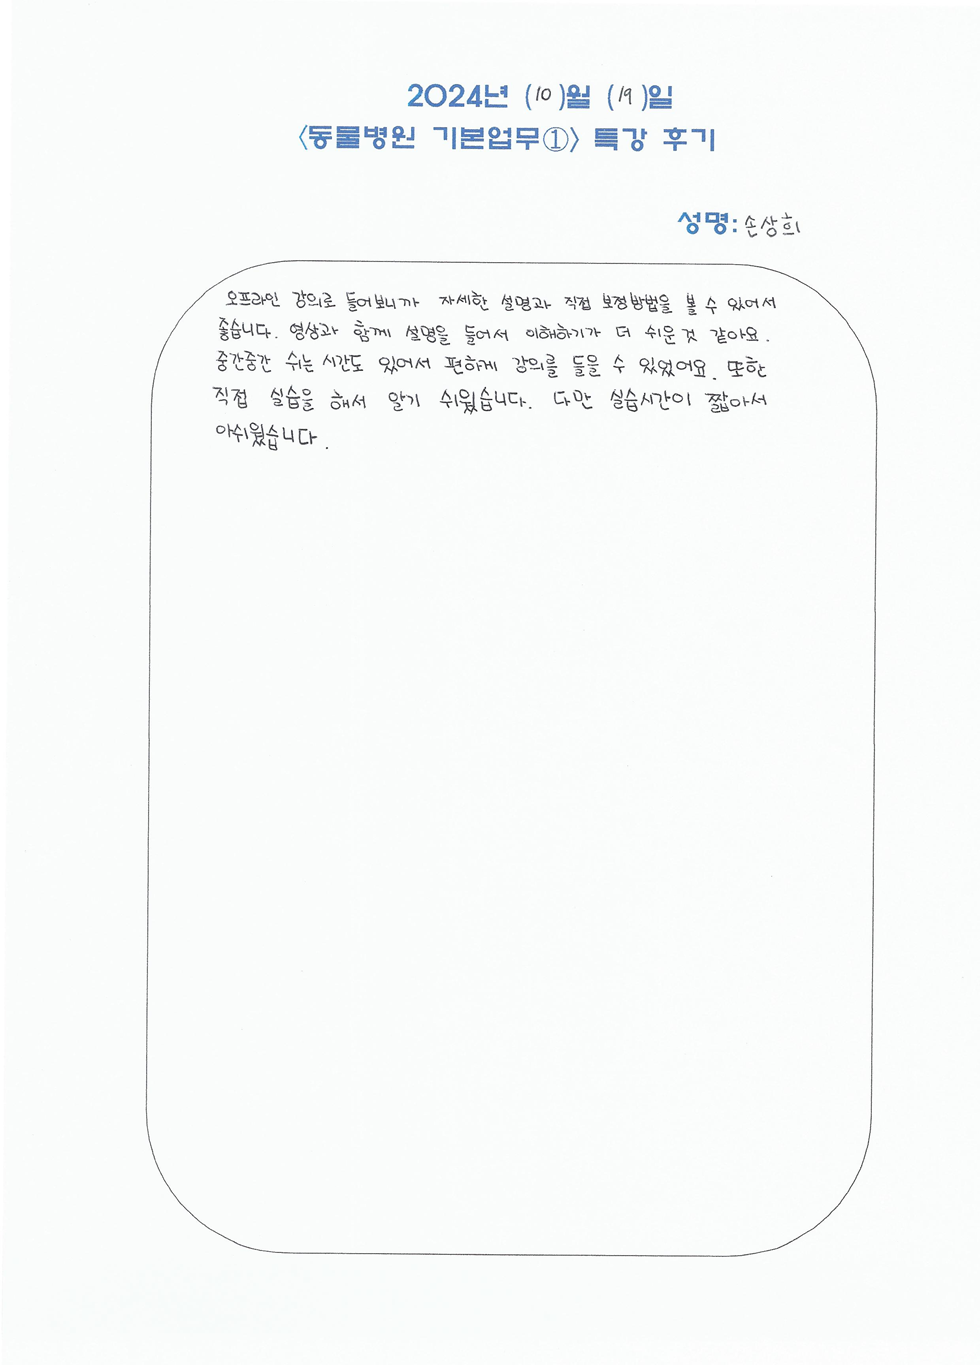 2024년 (10)월 (19)일
<동물병원 기본업무①> 특강 후기
성명: 손상희
오프라인 강의로 들어보니까 자세한 설명과 직접 보정방법을 볼 수 있어서
좋습니다. 영상과 함께 설명을 들어서 이해하기가 더 쉬운 것 같아요.
중간중간 쉬는 시간도 있어서 편하게 강의를 들을 수 있었어요. 또한
직접 실습을 해서 알기 쉬웠습니다. 다만 실습시간이 짧아서
아쉬웠습니다.